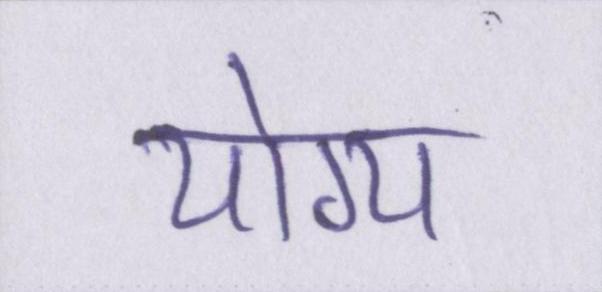 योग्य